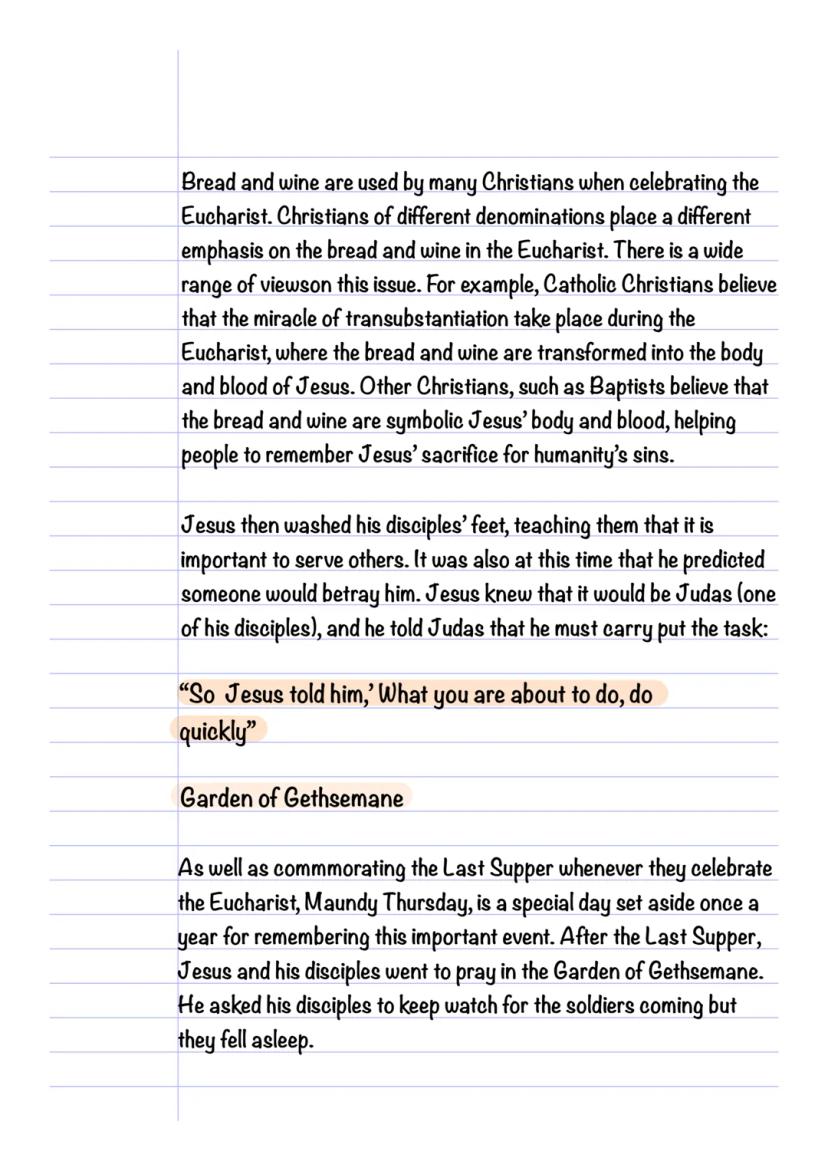 Bread and wine are used by many Christians when celebrating the
Eucharist. Christians of different denominations place a different
emphasis on the bread and wine in the Eucharist. There is a wide
range of viewson this issue. For example, Catholic Christians believe
that the miracle of transubstantiation take place during the
Eucharist, where the bread and wine are transformed into the body
and blood of Jesus. Other Christians, such as Baptists believe that
the bread and wine are symbolic Jesus’ body and blood, helping
people to remember Jesus’ sacrifice for humanity’s sins.
Jesus then washed his disciples’ feet, teaching them that it is
important to serve others. It was also at this time that he predicted
someone would betray him. Jesus knew that it would be Judas (one
of his disciples), and he told Judas that he must carry put the task:
“So Jesus told him,’ What you are about to do, do
quickly”
Garden of Gethsemane
As well as commmorating the Last Supper whenever they celebrate
the Eucharist, Maundy Thursday, is a special day set aside once a
year for remembering this important event. After the Last Supper,
Jesus and his disciples went to pray in the Garden of Gethsemane.
He asked his disciples to keep watch for the soldiers coming but
they fell asleep.